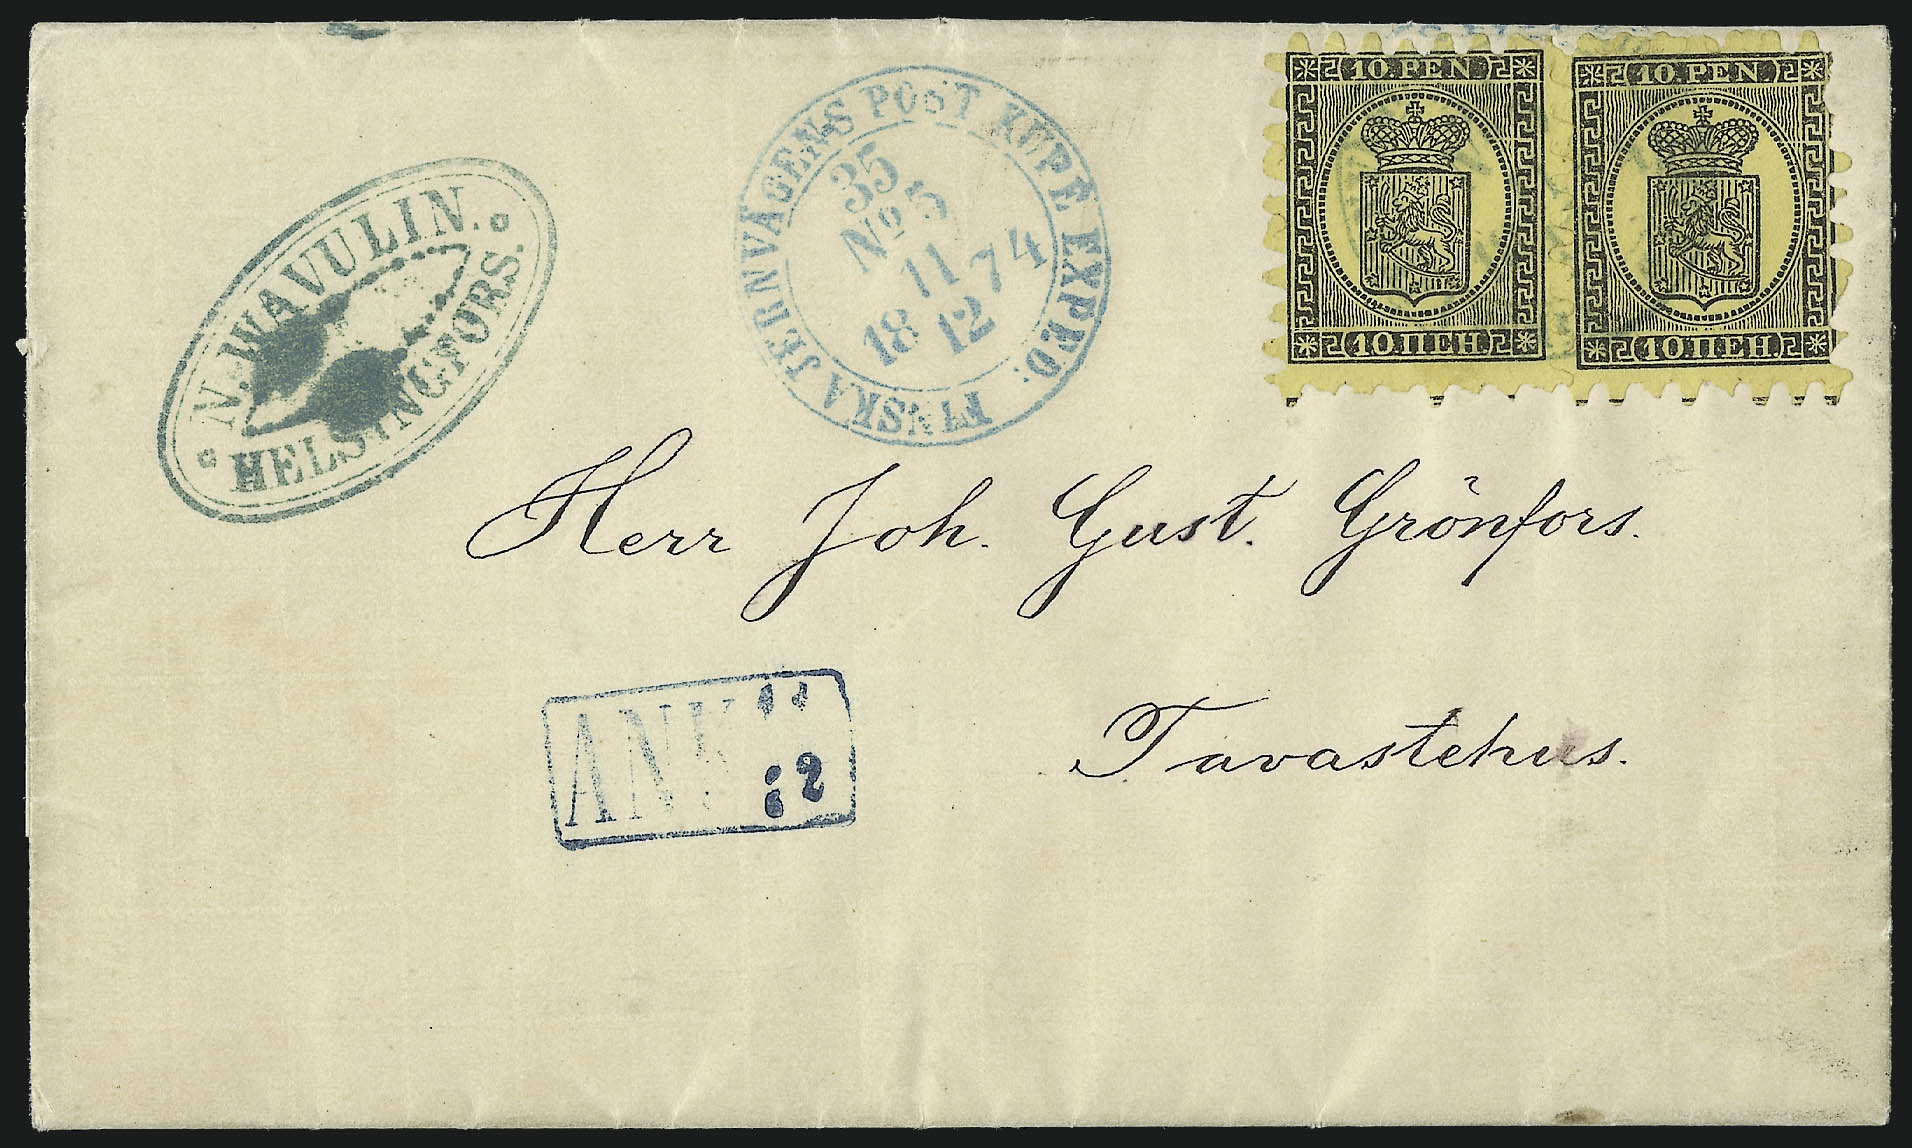 N. WAVULIN.
HELSINGFORS.
FINSKA JERNVÄGENS POST KUPÉ EXPED:
35
No 5
11
18 74
12
10.PEN
10.ПЕН
10.PEN
10.ПЕН
Herr Joh. Gust. Grönfors.
Tavastehus.
ANK